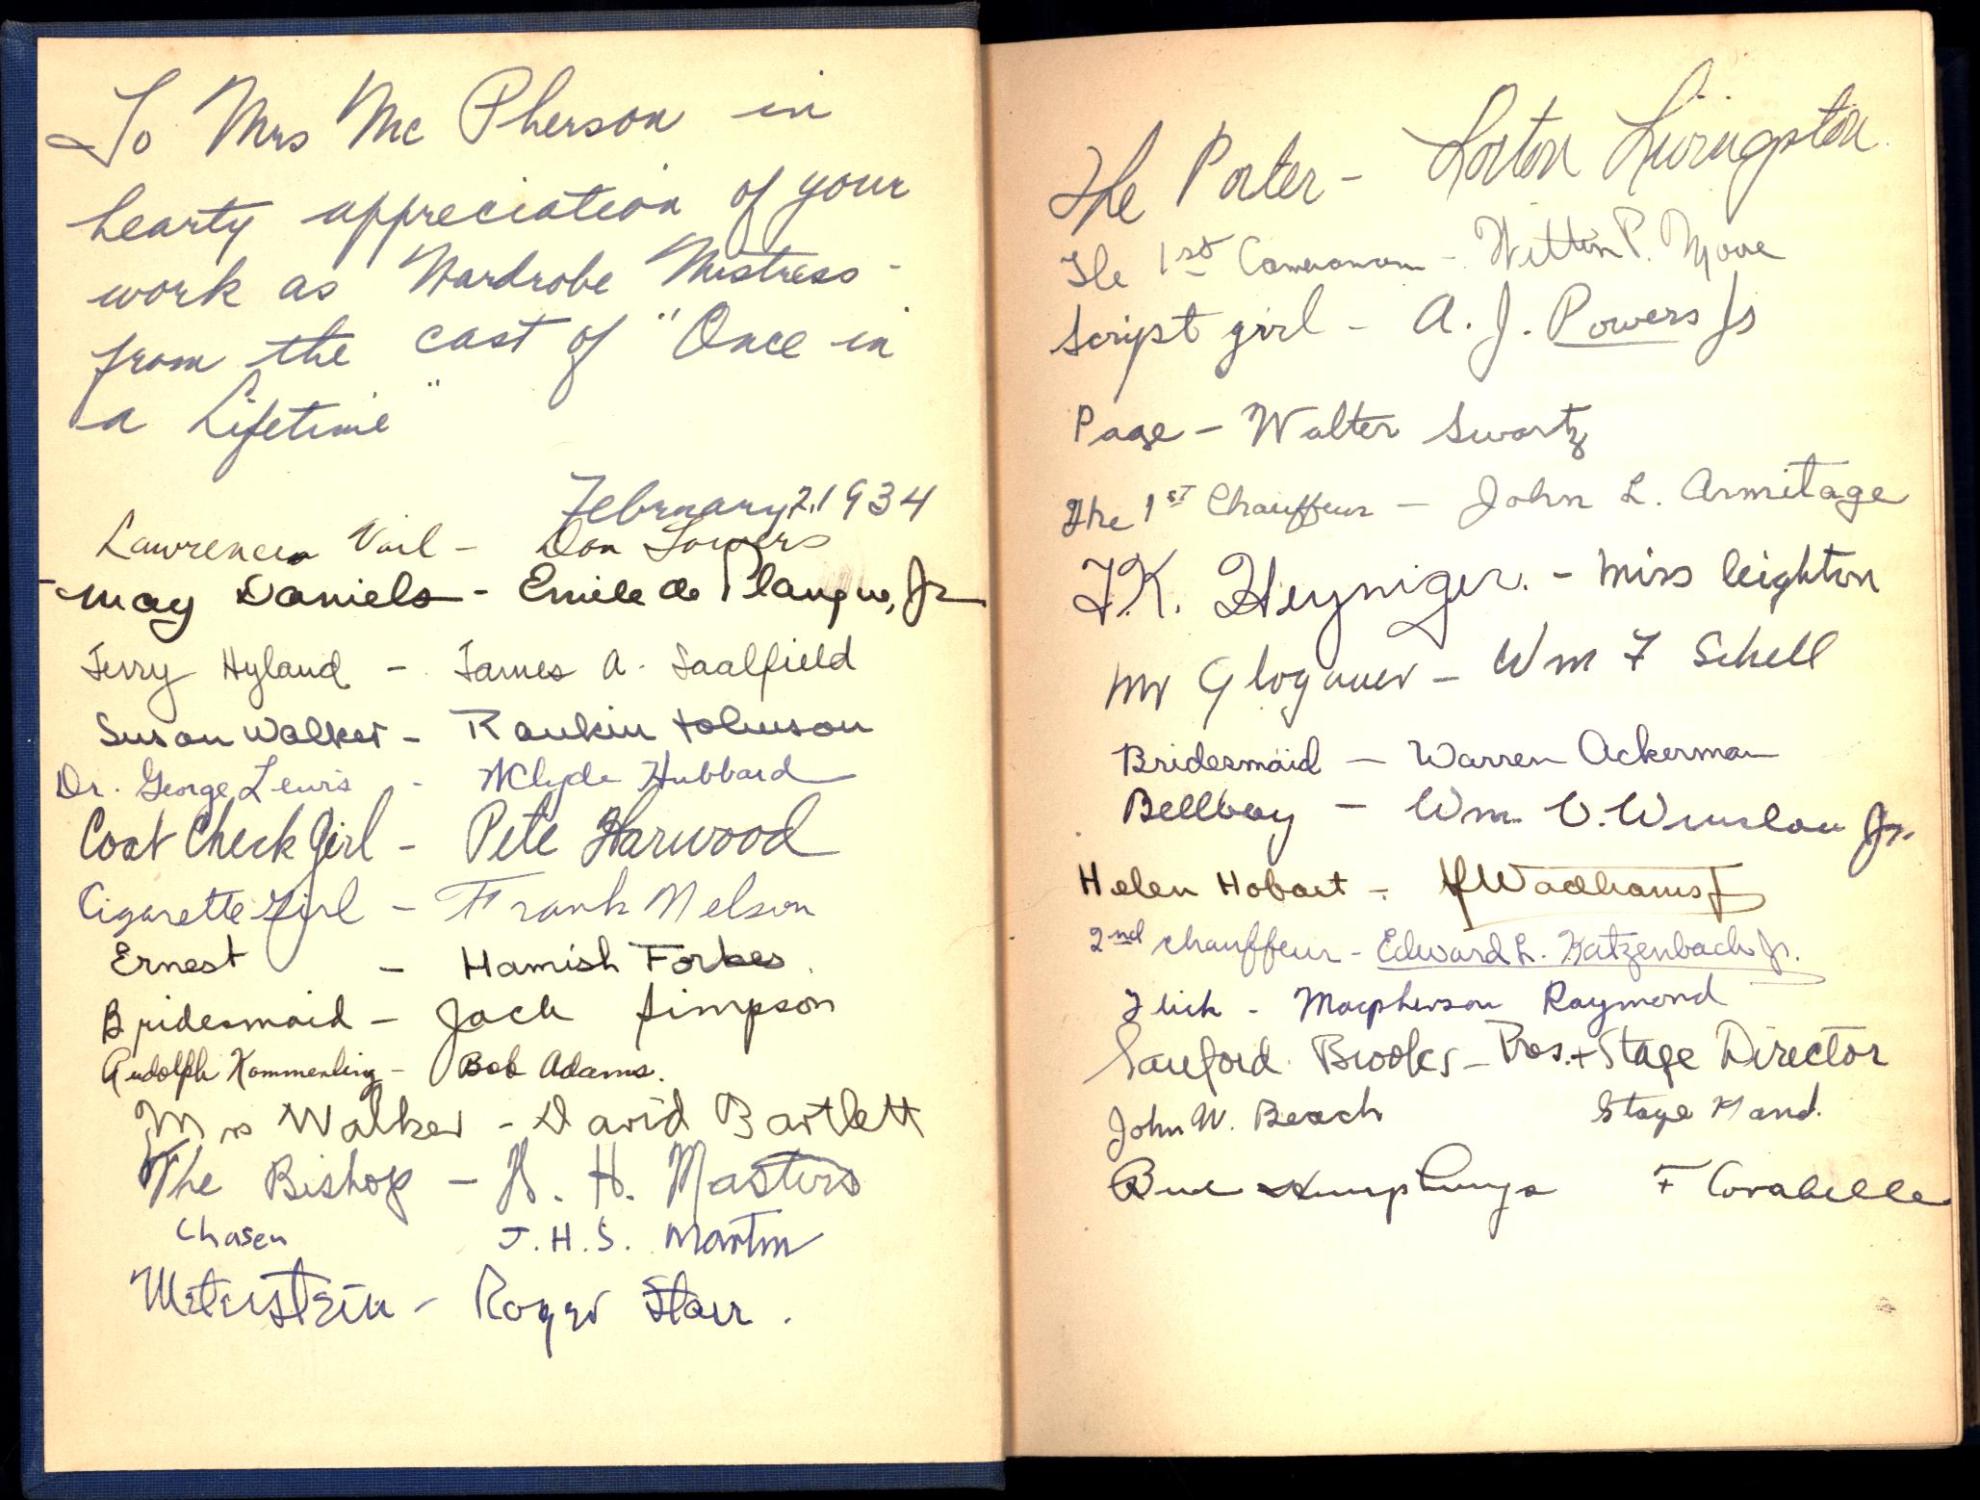 To Mrs Mc Pherson in
hearty appreciation of your
work as Wardrobe Mistress -
from the cast of "Once in
a Lifetime"
February 2, 1934
Lawrence Vail - Don Lowers
May Daniels - Emile de Planque, Jr
Jerry Hyland - James A. Saalfield
Susan Walker - Rankin Johnson
Dr. George Lewis - Clyde Hubbard
Coat Check Girl - Pete Harwood
Cigarette Girl - Frank Nelson
Ernest - Hamish Forbes
Bridesmaid - Jack Simpson
Rudolph Kammerling - Bob Adams.
Mrs Walker - David Bartlett
The Bishop - H. H. Masters
Chasen J. H. S. Martin
Meterstein - Roger Starr.
The Porter - Lorton Livingston
The 1st Cameraman - P. Moore
Script girl - A. J. Powers Jr
Page - Walter Swartz
The 1st Chauffeur - John L. Armitage
F.K. Heyniger. - Miss Leighton
Mr Glogauer - Wm F Schell
Bridesmaid - Warren Ackerman
Bellboy - Wm V. Winslow Jr.
Helen Hobart - Wadhams
2nd chauffeur - Edward L. Katzenbach Jr.
Flick - Macpherson Raymond
Sanford Brooks - Pres. + Stage Director
John W. Beach Stage Hand.
Humphreys F Corabelle